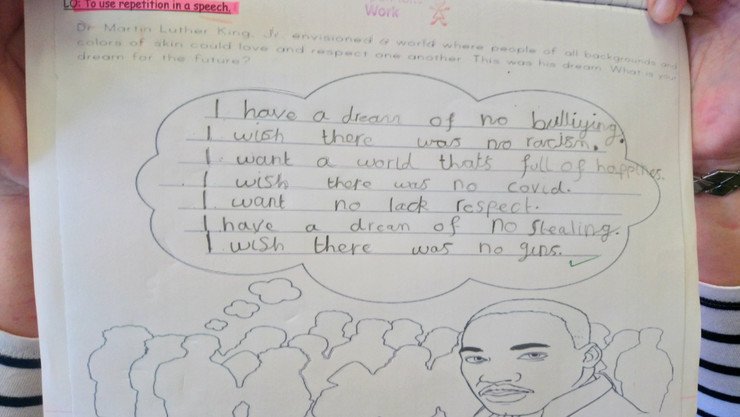 LO: To use repetition in a speech.
Work
Dr Martin Luther King, Jr. envisioned a world where people of all backgrounds and
colors of skin could love and respect one another. This was his dream. What is your
dream for the future?
I have a dream of no bulliying.
I wish there was no racism.
I want a world thats full of happines.
I wish there was no covid.
I want no lack respect.
I have a drean of no stealing.
I wish there was no guns.